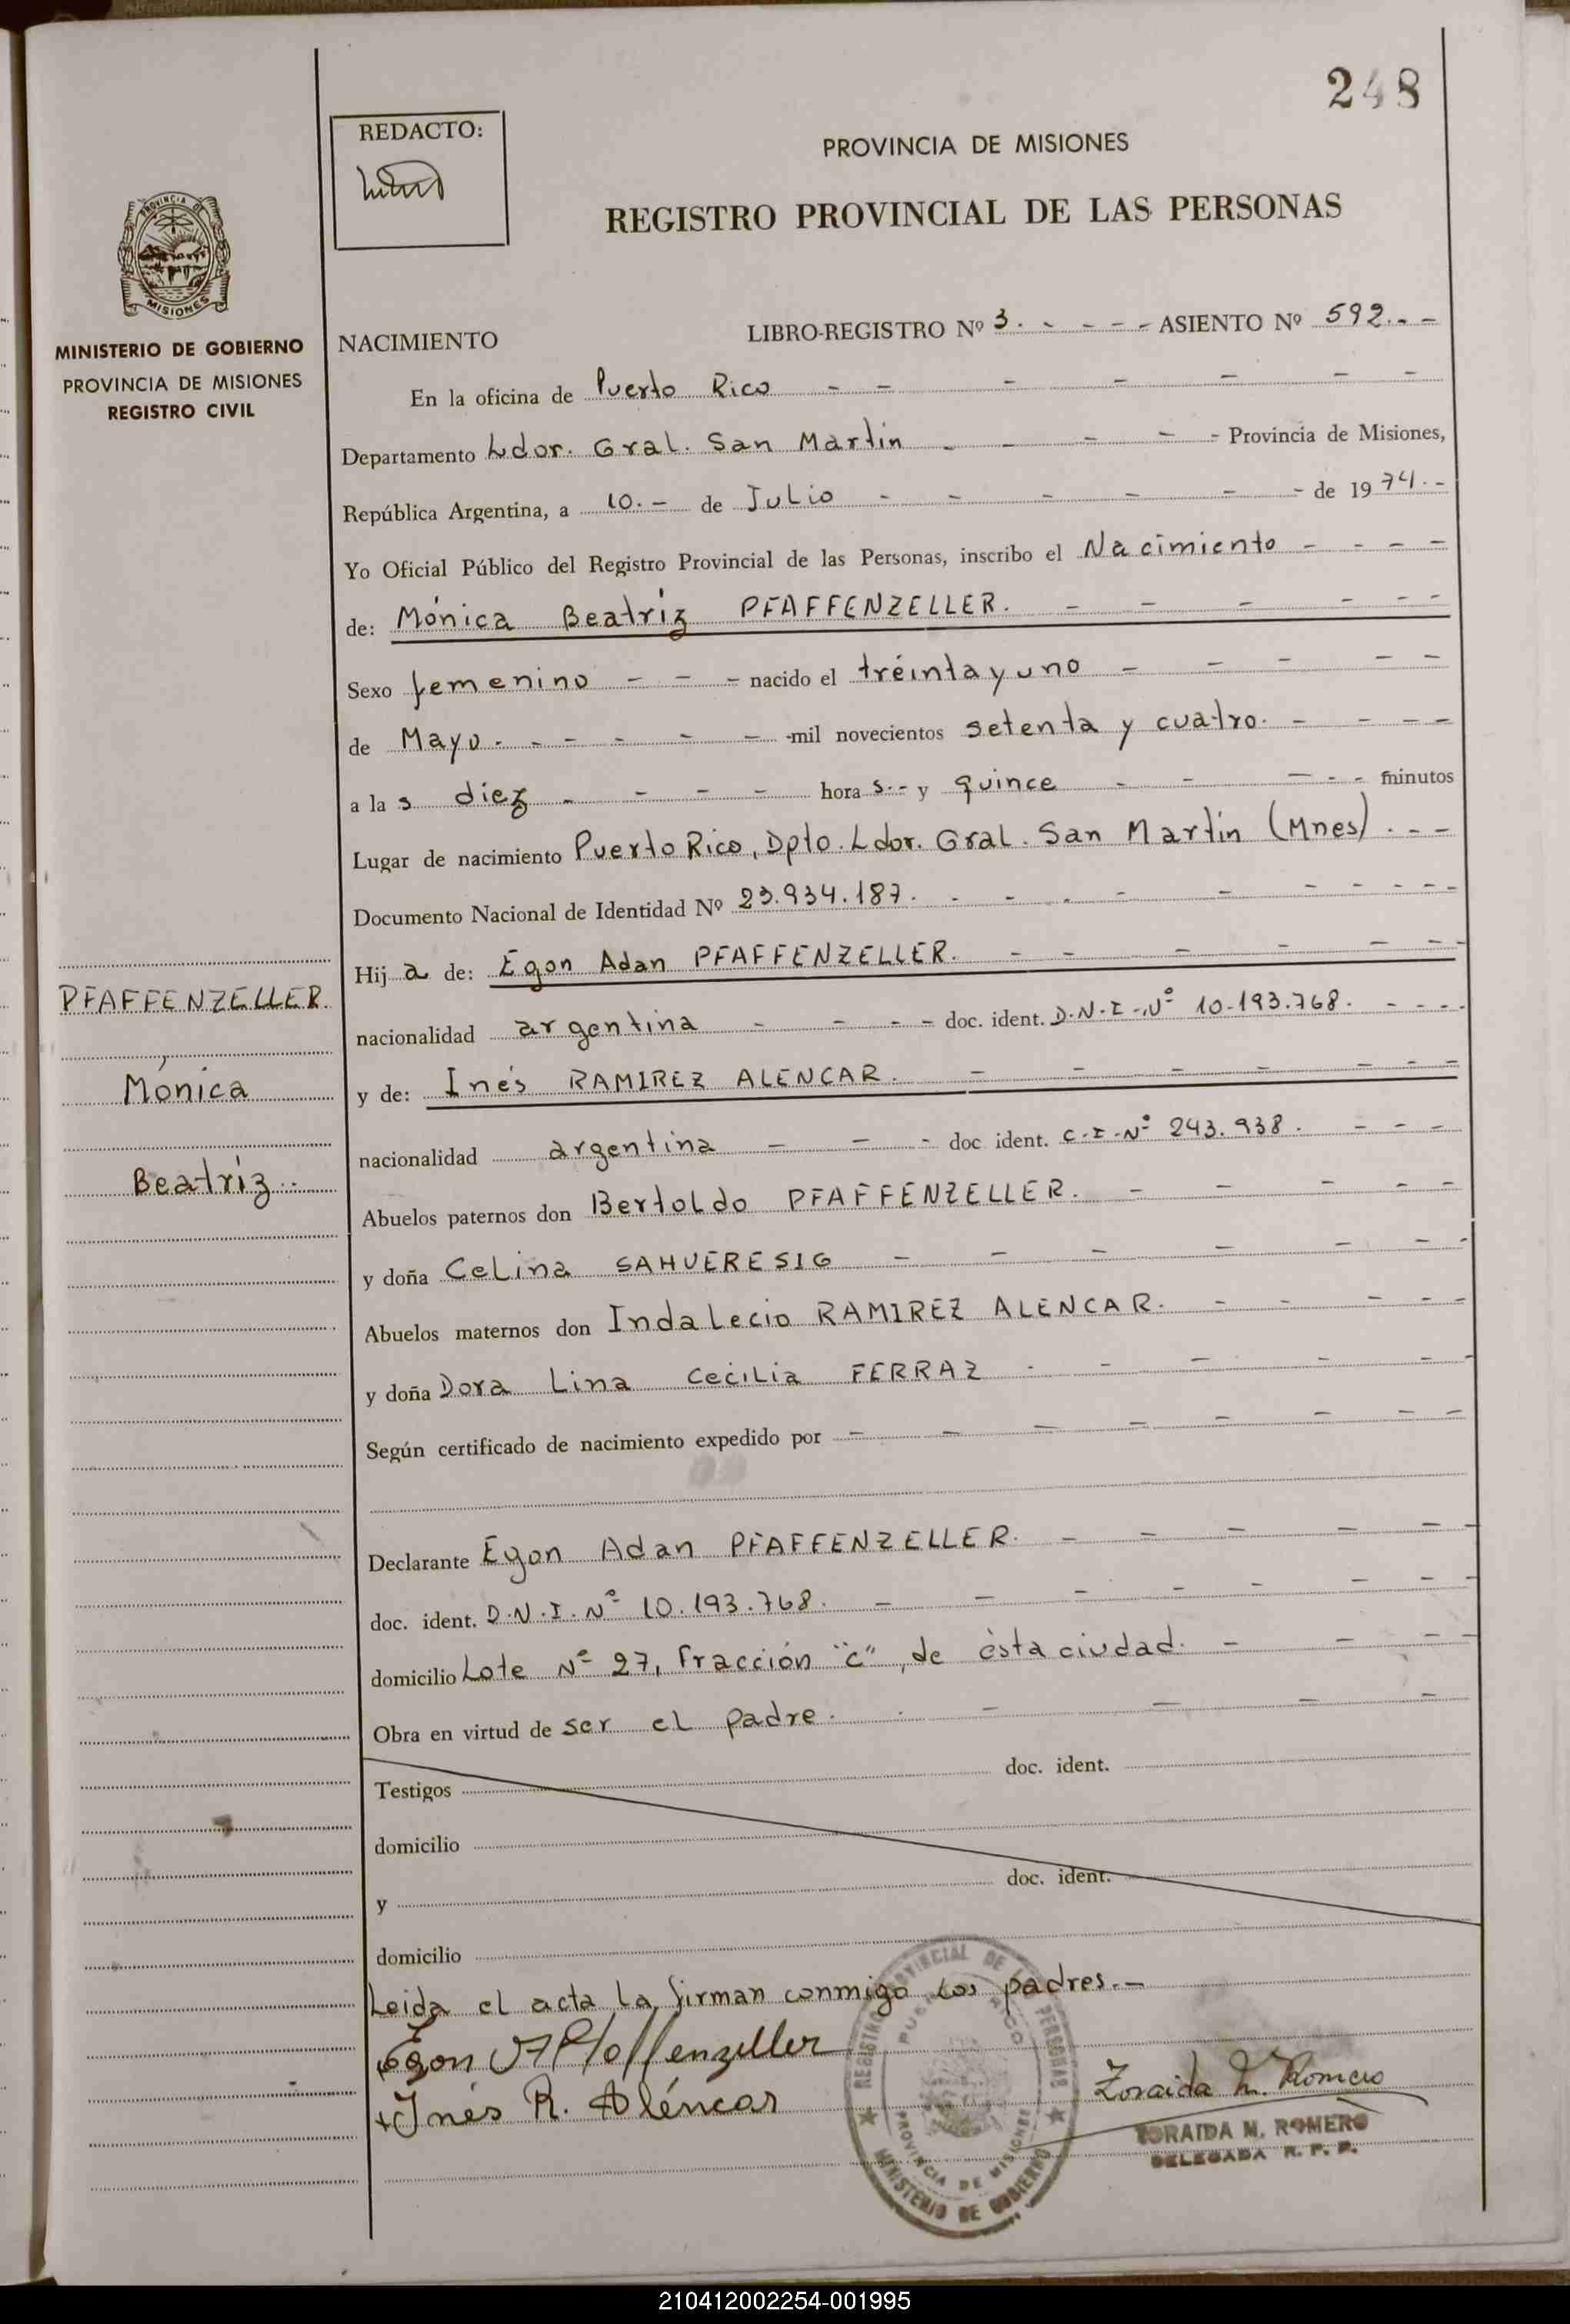 248
REDACTO:
PROVINCIA DE MISIONES
REGISTRO PROVINCIAL DE LAS PERSONAS
PROVINCIA DE
MISIONES
MINISTERIO DE GOBIERNO
PROVINCIA DE MISIONES
REGISTRO CIVIL
NACIMIENTO
LIBRO-REGISTRO Nº 3. - - - - - ASIENTO Nº 592. - -
En la oficina de Puerto Rico - - - - - - -
Departamento Ldor. Gral. San Martín - - - - - Provincia de Misiones,
República Argentina, a 10. - de Julio - - - - - - de 1974. -
Yo Oficial Público del Registro Provincial de las Personas, inscribo el Nacimiento - - - -
de: Mónica Beatriz PFAFFENZELLER. - - - - - -
Sexo femenino - - - nacido el tréinta y uno - - - - -
de Mayo. - - - - - - mil novecientos setenta y cuatro. - - - -
a las diez - - - - hora s. - y quince - - - - - minutos
Lugar de nacimiento Puerto Rico, Dpto. Ldor. Gral. San Martín (Mnes). - -
Documento Nacional de Identidad Nº 23.934.187. - - - - - - - - -
Hija de: Egon Adan PFAFFENZELLER. - - - - - - -
PFAFFENZELLER.
nacionalidad argentina - - - - doc. ident. D.N.I.Nº 10.193.768. - - - -
Mónica
y de: Inés RAMIREZ ALENCAR. - - - - - - -
nacionalidad argentina - - - doc. ident. C.I.Nº 243.938. - - -
Beatriz. -
Abuelos paternos don Bertoldo PFAFFENZELLER. - - - - -
y doña Celina SAHUERESIG - - - - - - -
Abuelos maternos don Indalecio RAMIREZ ALENCAR. - - - - -
y doña Dora Lina Cecilia FERRAZ - - - - -
Según certificado de nacimiento expedido por - - - - - - - -
Declarante Egon Adan PFAFFENZELLER. - - - - -
doc. ident. D.N.I. Nº 10.193.768. - - - - - - -
domicilio Lote Nº 27, fracción "c", de ésta ciudad. - - - -
Obra en virtud de ser el padre. - - - - -
Testigos doc. ident.
domicilio
y doc. ident.
domicilio
Leida el acta la firman conmigo los padres. -
Egon A Pfaffenzeller
Inés R. Aléncar
REGISTRO PROVINCIAL DE LAS PERSONAS
PUERTO RICO
PROVINCIA DE MISIONES
MINISTERIO DE GOBIERNO
Zoraida M. Romero
ZORAIDA M. ROMERO
DELEGADA R. P. P.
210412002254-001995